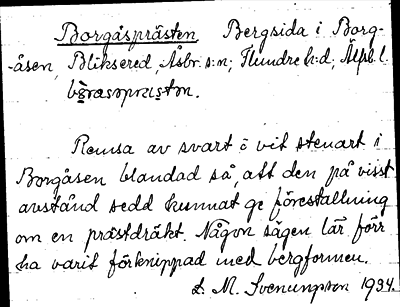 Borgåsprästen Bergsida i Borg-
-åsen, Bliksered, Åsbr. s:n; Flundre h:d; Älvsb. l.
Remsa av svart o vit stenart i
Borgåsen blandad så, att den på visst
avstånd sedd kunnat ge föreställning
om en prästdräkt. Någon sägen lär förr
ha varit förknippad med bergformen.
L. M. Svenungson 1934.